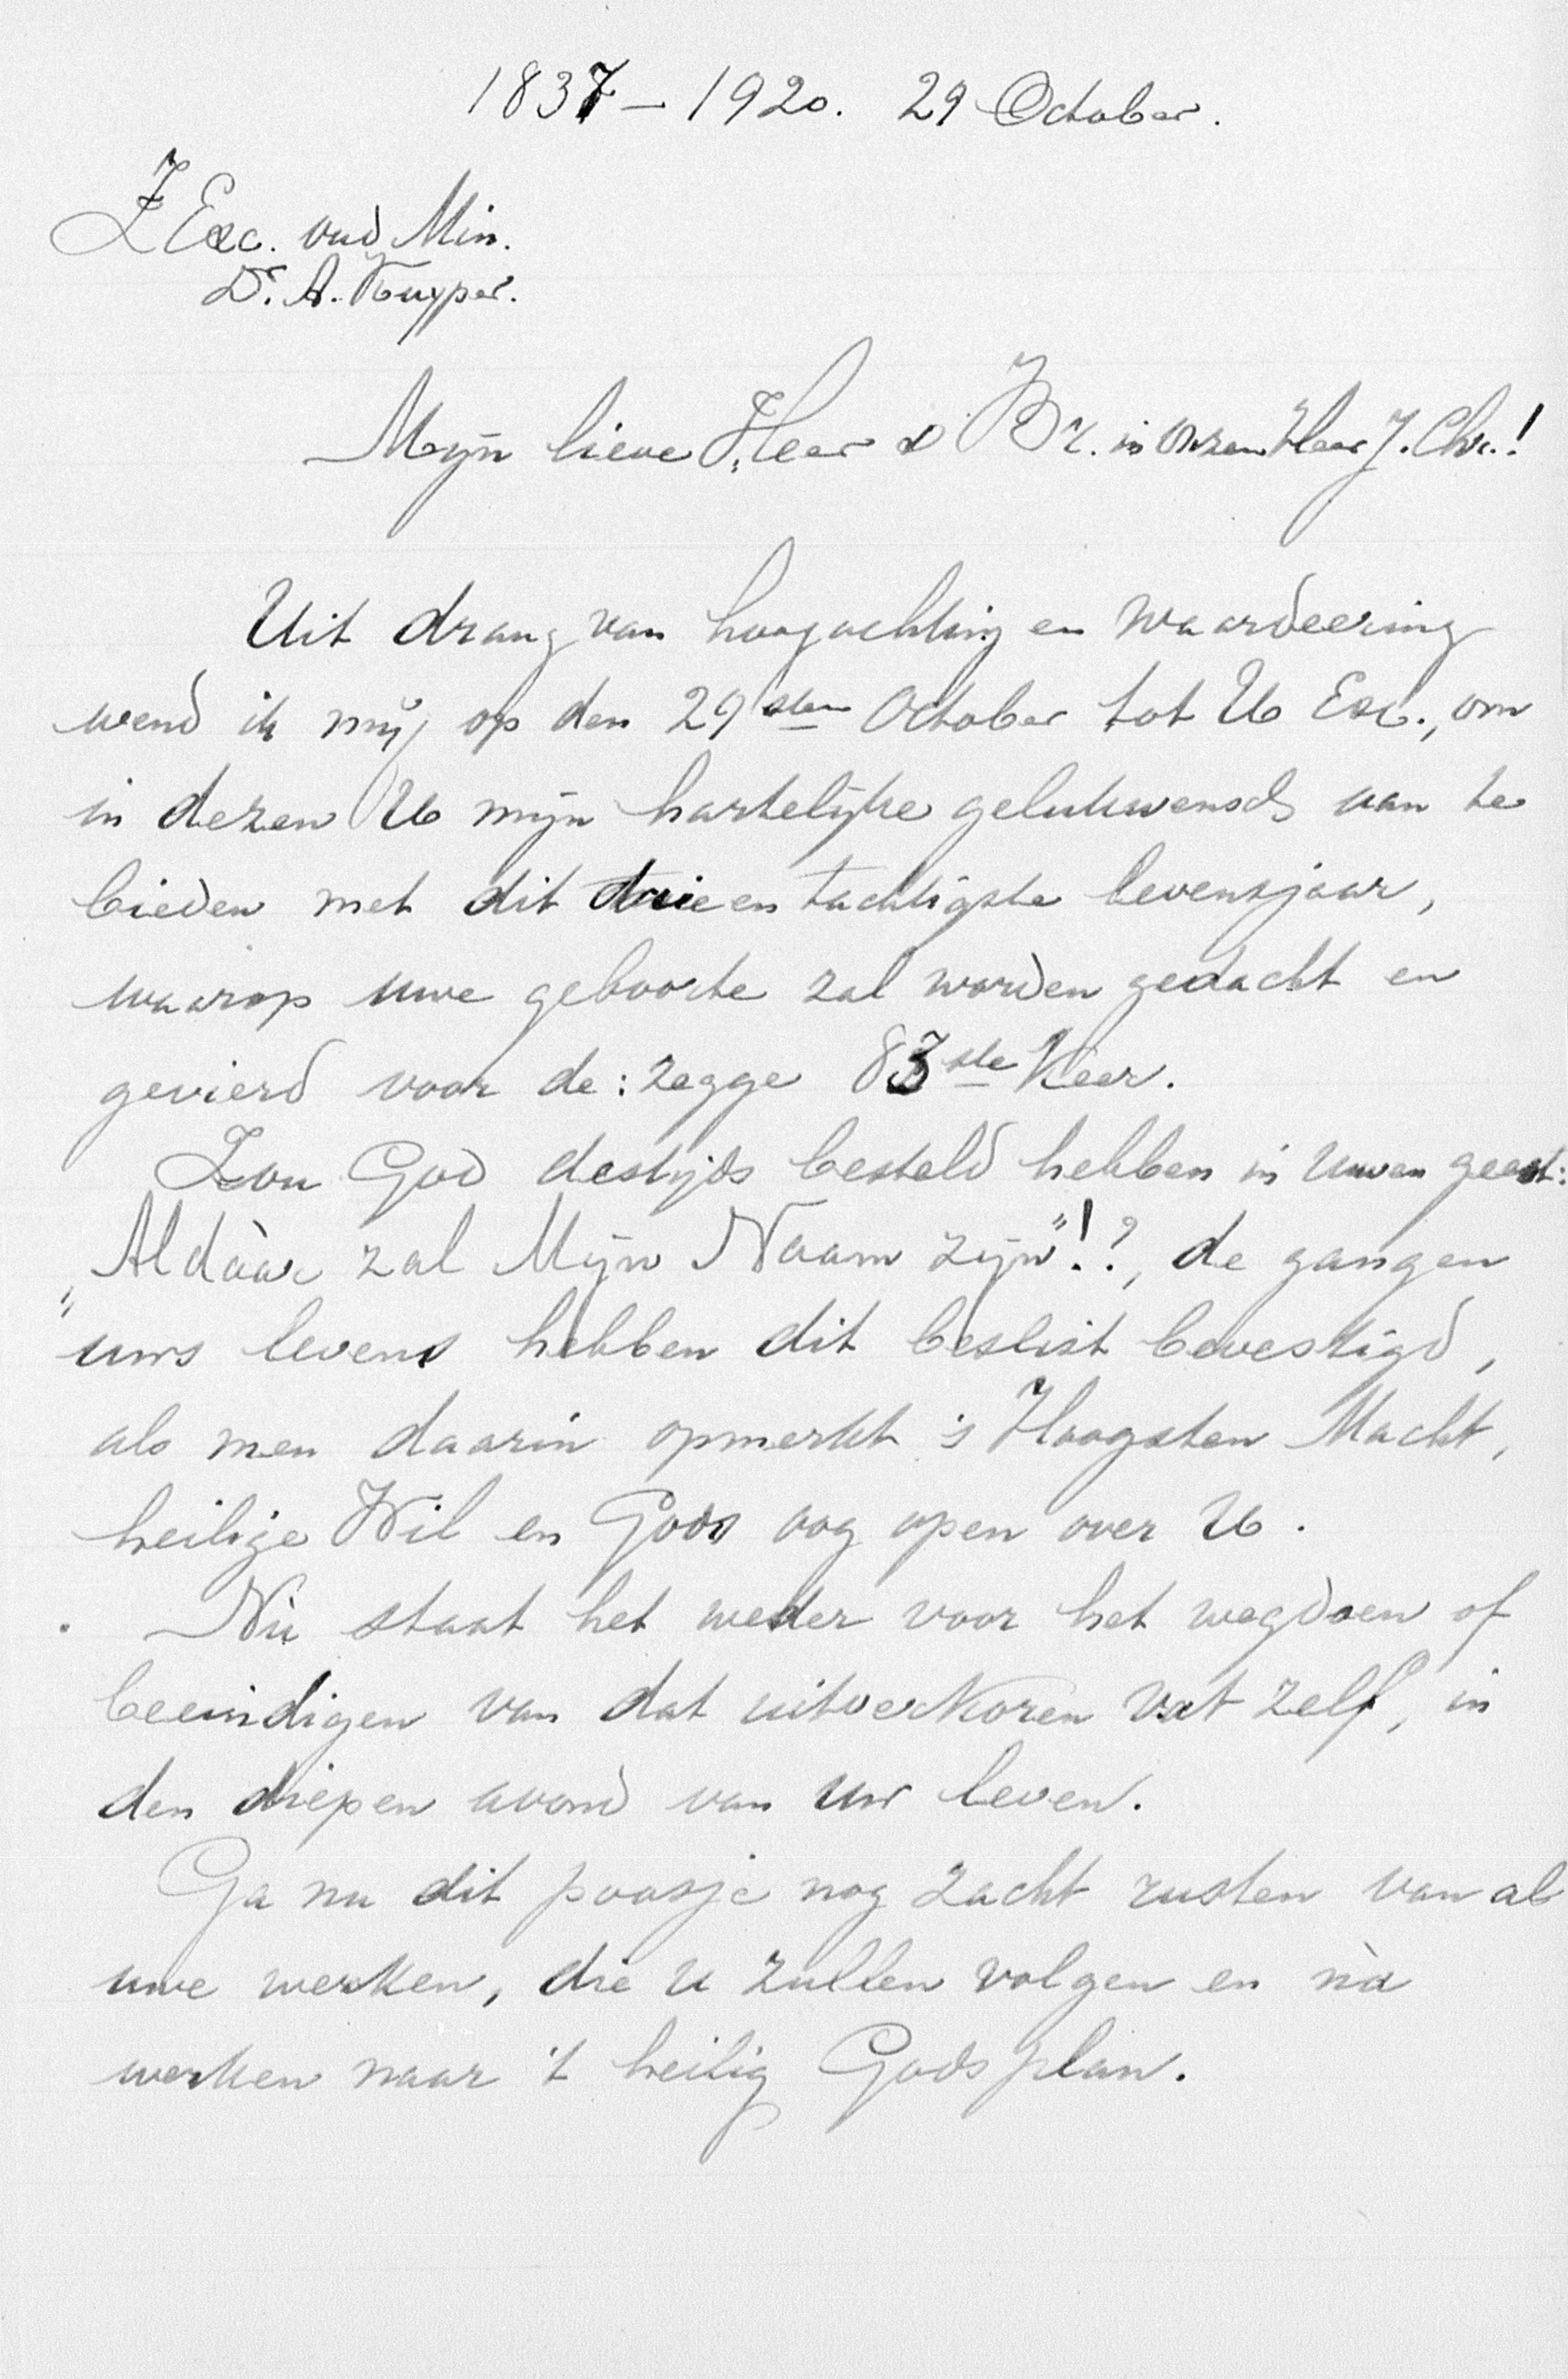 1837 – 1920. 29 October.
Z Exc. oud Min.
Dr. A. Kuyper.
Mijn lieve Heer & Br. in onzen Heer J. Chr.!
Uit drang van hoogachting en waardeering
wend ik mij op den 29sten October tot U Exc., om
in dezen U mijn hartelijke gelukwensch aan te
bieden met dit drie en tachtigste levensjaar,
waarop uwe geboorte zal worden gedacht en
gevierd voor de: zegge 83ste Keer.
Zou God destijds besteld hebben in uwen geest:
„Aldààr zal Mijn Naam zijn"!?, de gangen
uws levens hebben dit beslist bevestigd,
als men daarin opmerkt 's Hoogsten Macht,
heilige Wil en Gods oog open over U.
Nù staat het weder voor het wegdoen of
beeindigen van dat uitverkoren vat zelf, in
den diepen avond van uw leven.
Ga nu dit poosje nog zacht rusten van al
uwe werken, die u zullen volgen en nà
werken naar 't heilig Gods plan.